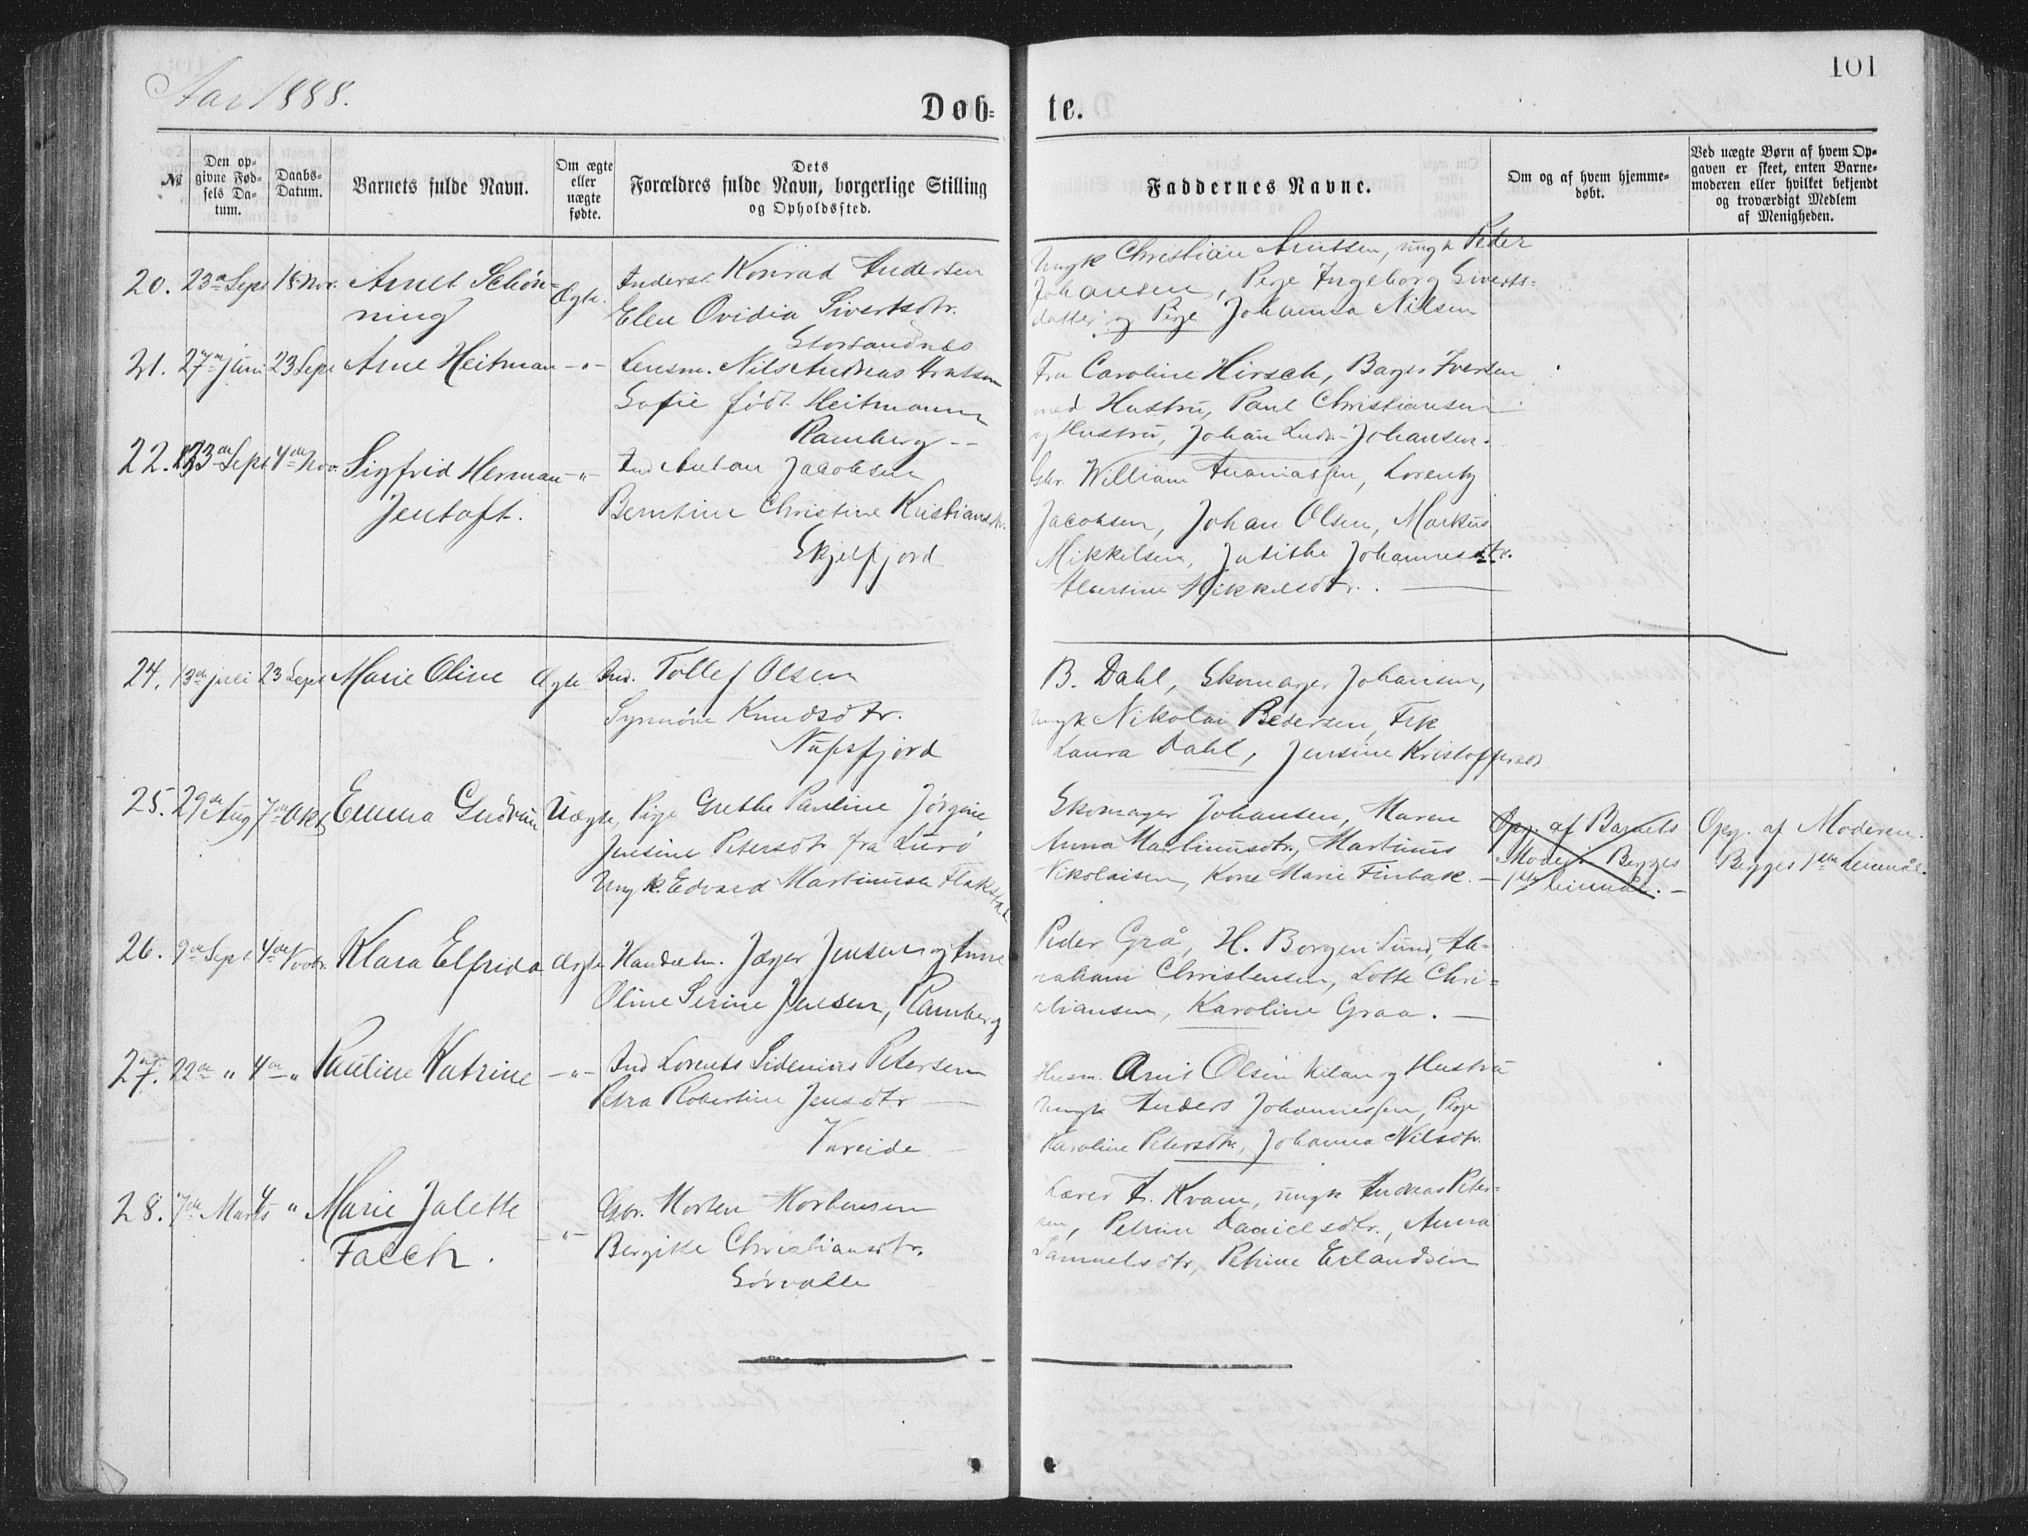 Aar 1888.
101
Døb-
te.
№
Den op-
givne Fød-
sels Da-
tum.
Daabs-
Datum.
Barnets fulde Navn.
Om ægte
eller
uægte
fødte.
Dets
Forældres fulde Navn, borgerlige Stilling
og Opholdssted.
Faddernes Navne.
Om og af hvem hjemme-
døbt.
Ved uægte Børn af hvem Op-
gaven er skeet, enten Barne-
moderen eller hvilket bekjendt
og troværdigt Medlem
af Menigheden.
20. 23de Sept 18 Nov. Arnet Schøn-
ning
Ægte.
Konrad Andersen
Elen Ovidia Sivertsdtr.
Storsandnæs
Ungk Christian Arntsen, ungk Peder
Johansen, Pige Ingeborg Siverts-
datter og Pige Johanna Nilsen
21. 27de Juni 23 Sept Arne Heitman -"-
Lensm. Nils Andreas Arntsen
Sofie født Heitmann
Ramberg --
Fru Caroline Hirsch, Bager Iversen
med Hustru, Paul Christiansen
og Hustru, Johan Ludv. Johansen.
22. 23de Sept 4de Nov. Sigfrid Herman -"-
Jentoft.
Ind Anton Jacobsen
Berntine Christine Kristiansdtr.
Skjelfjord
Gbr. William Ananiassen, Lorentz
Jacobsen, Johan Olsen, Markus
Mikkelsen, Judithe Johannesdtr.
Albertine Mikkelsdtr.
24. 13de juli 23 Sept Marie Oline Ægte
Ind. Tollef Olsen
Synnøve Knudsdtr.
Nufsfjord
B. Dahl, Skomager Johansen,
ungk Nikolai Pedersen, Frk
Laura Dahl, Jensine Kristoffersdt
25. 29de Aug 7de Okt Emma Gudrun Uægte,
Pige Grethe Pauline Jørgine
Jensine Petersdtr fra Lurø
Ungk Edvard Martinusen Flakstad
Skomager Johansen, Maren
Anna Martinusdtr., Martinus
Nikolaisen, Kone Marie Finbak. -
Opg. af Barnets
Moder. Begges
1ste Leiermål. -
Opg. af Moderen.
Begges 1ste Leiermål.
26. 9de Sept 4de Novbr. Klara Elfrida Ægte
Handelm. Jæger Jensen og Anne
Oline Serine Jensen, Ramberg
Peder Grå, H. Borgen Lund, Ab-
raham Christensen, Lotte Chri-
stiansen, Karoline Graa. -
27. 22de " 4de " Pauline Katrine -"-
Ind Lorents Sidenius Petersen
Petra Robertine Jensdtr -
Vareide -
Husm. Arnt Olsen Kilan og Hustru
Ungk Anders Johannessen, Pige
Karoline Petersdtr, Johanna Nilsdtr.
28. 7de Marts 4 " Marie Jalette
Falch.
-"-
Gbr. Morten Mortensen
Bergitte Christiansdtr.
Sørvalle
Lærer A. Kvam, ungk Andreas Peter-
sen, Petrine Danielsdtr., Anna
Samuelsdtr, Petrine Erlandsen